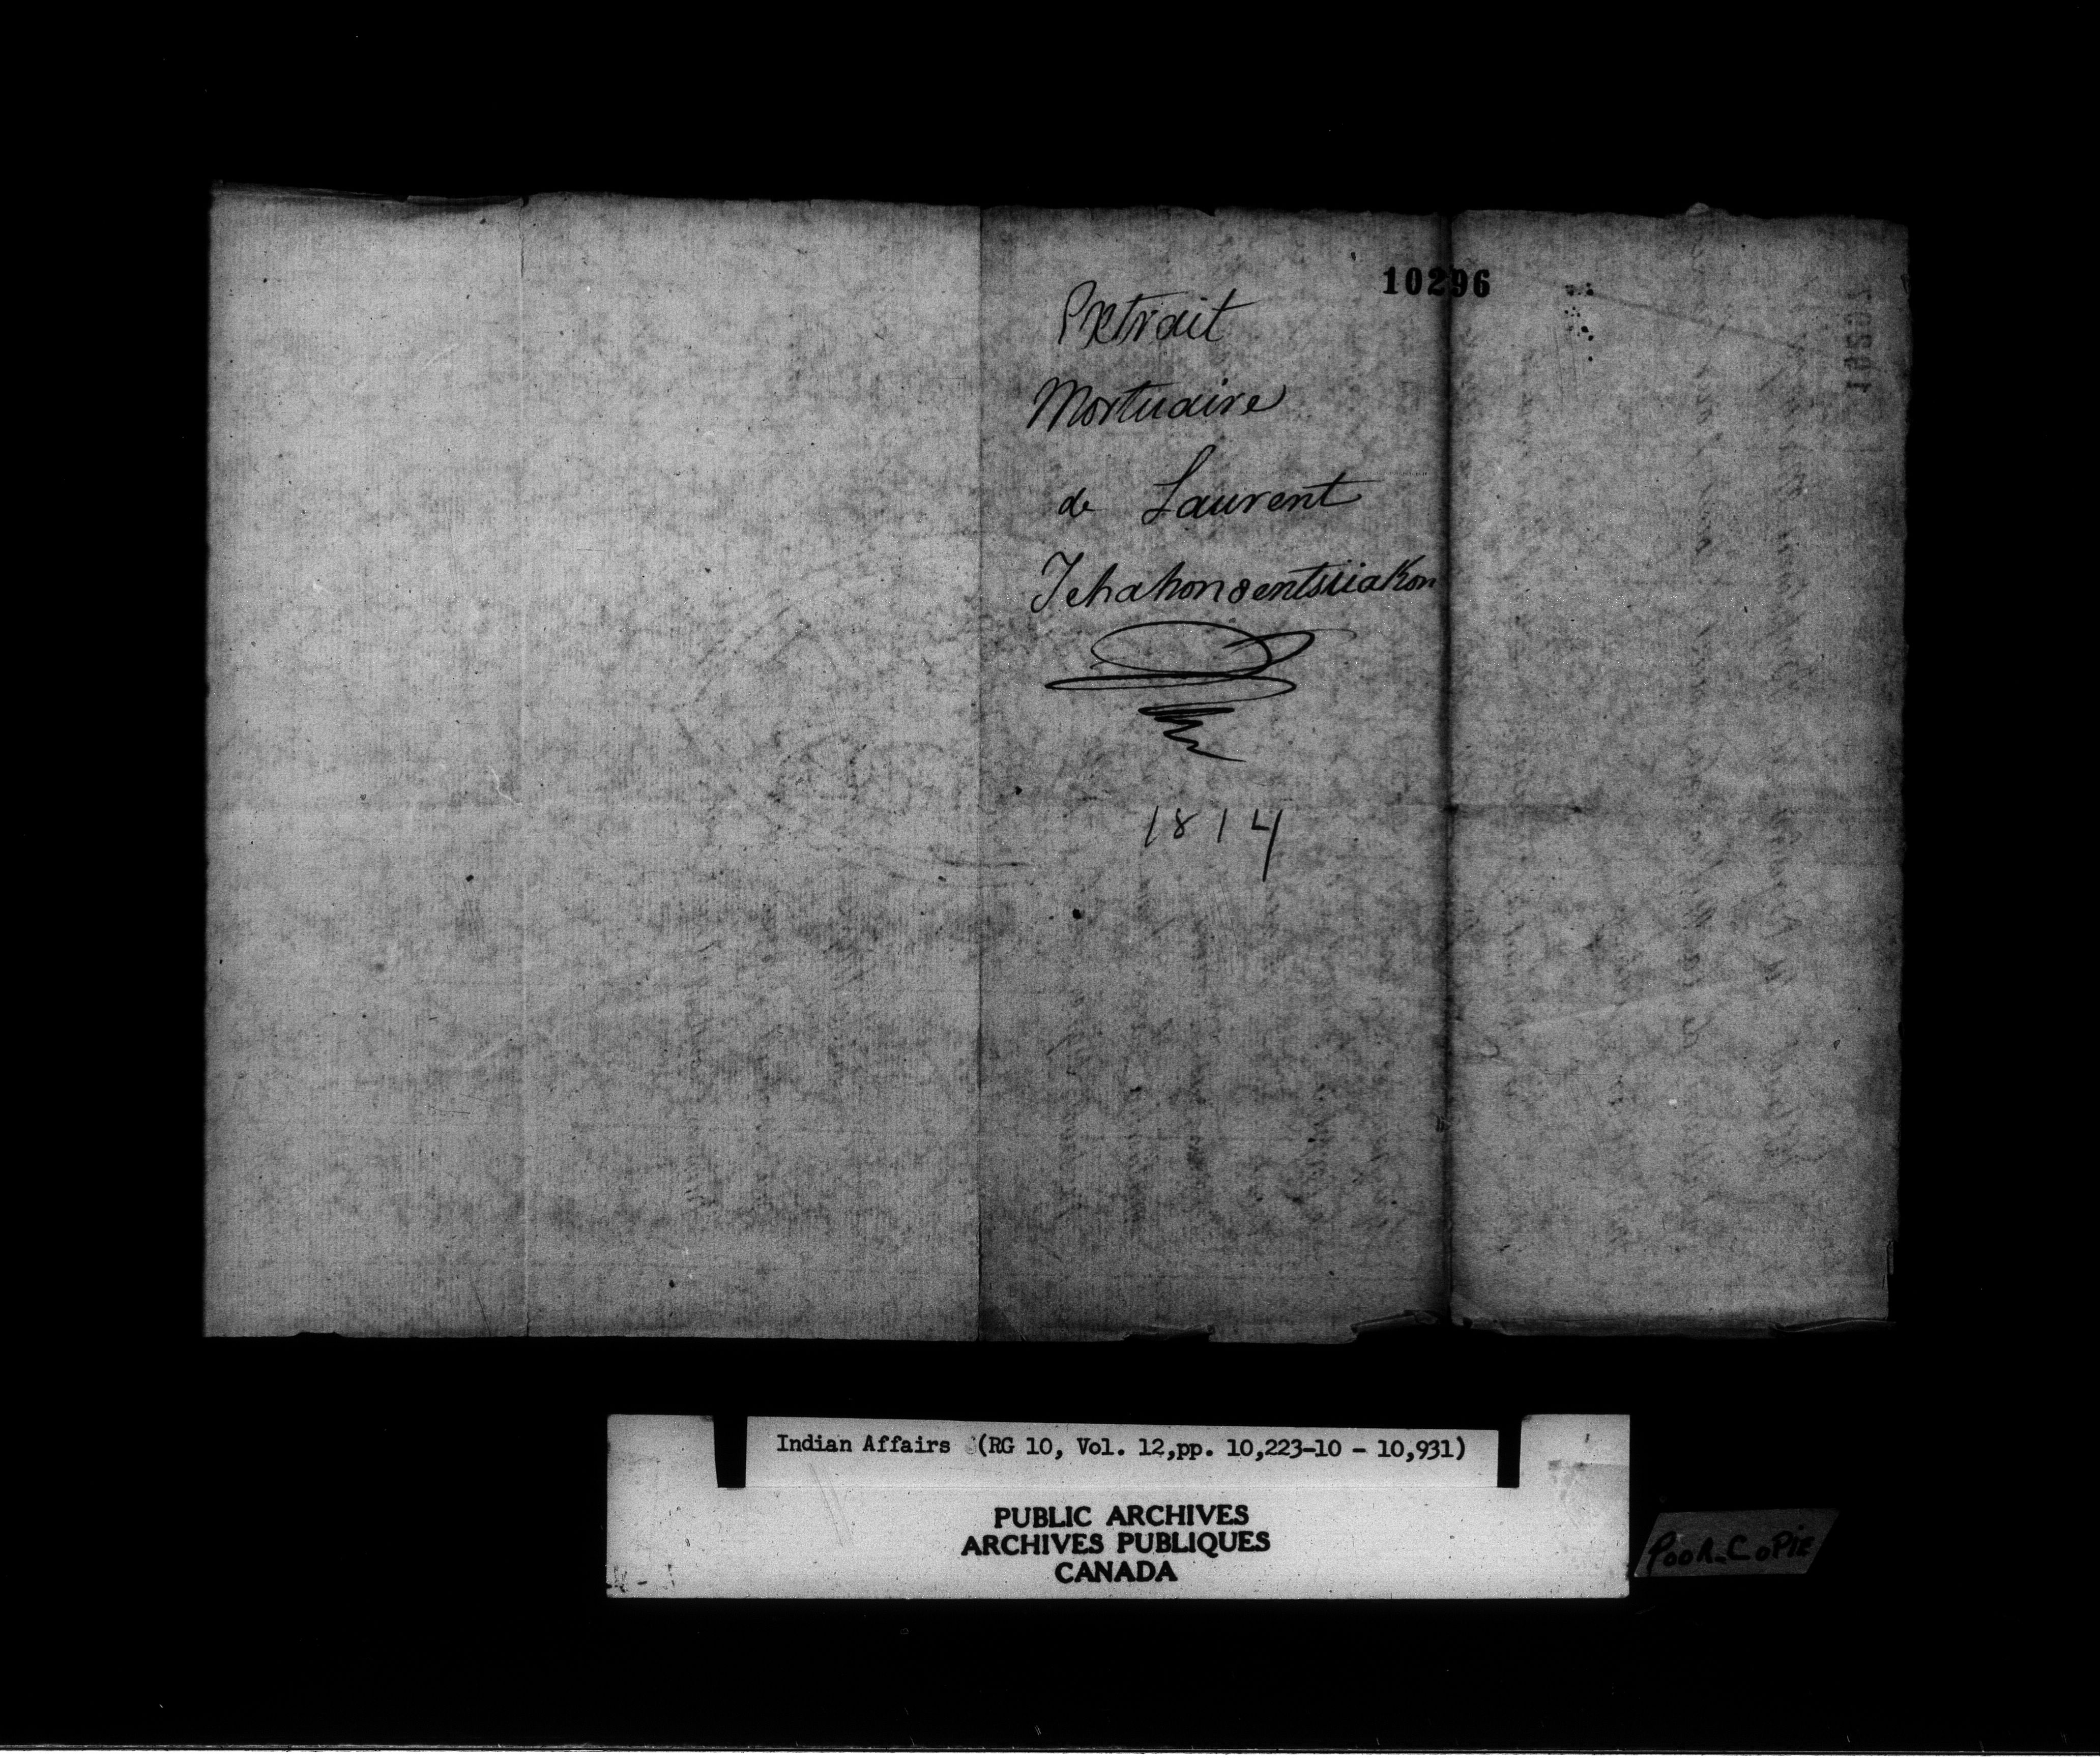 10296
Extrait
Mortuaire
de Laurent
Tehahon8entsiiakon
1814
Indian Affairs (RG 10, Vol. 12,pp. 10,223-10 - 10,931)
PUBLIC ARCHIVES
ARCHIVES PUBLIQUES
CANADA
POOR COPIE